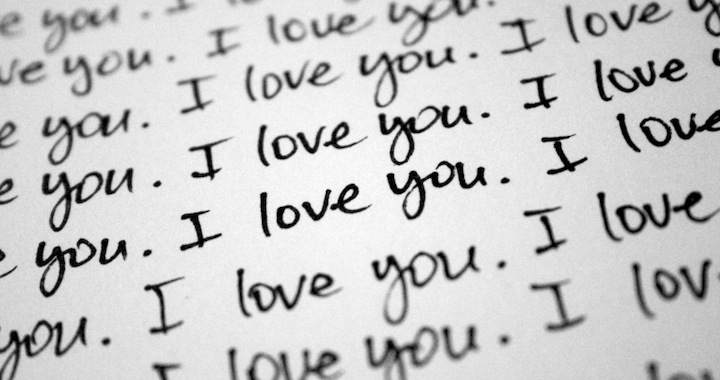 e you. I lo
ve you. I love you.
e you. I love you. I love y
e you. I love you. I love
e you. I love you. I love
you. I love you. I love
I love you. I lov